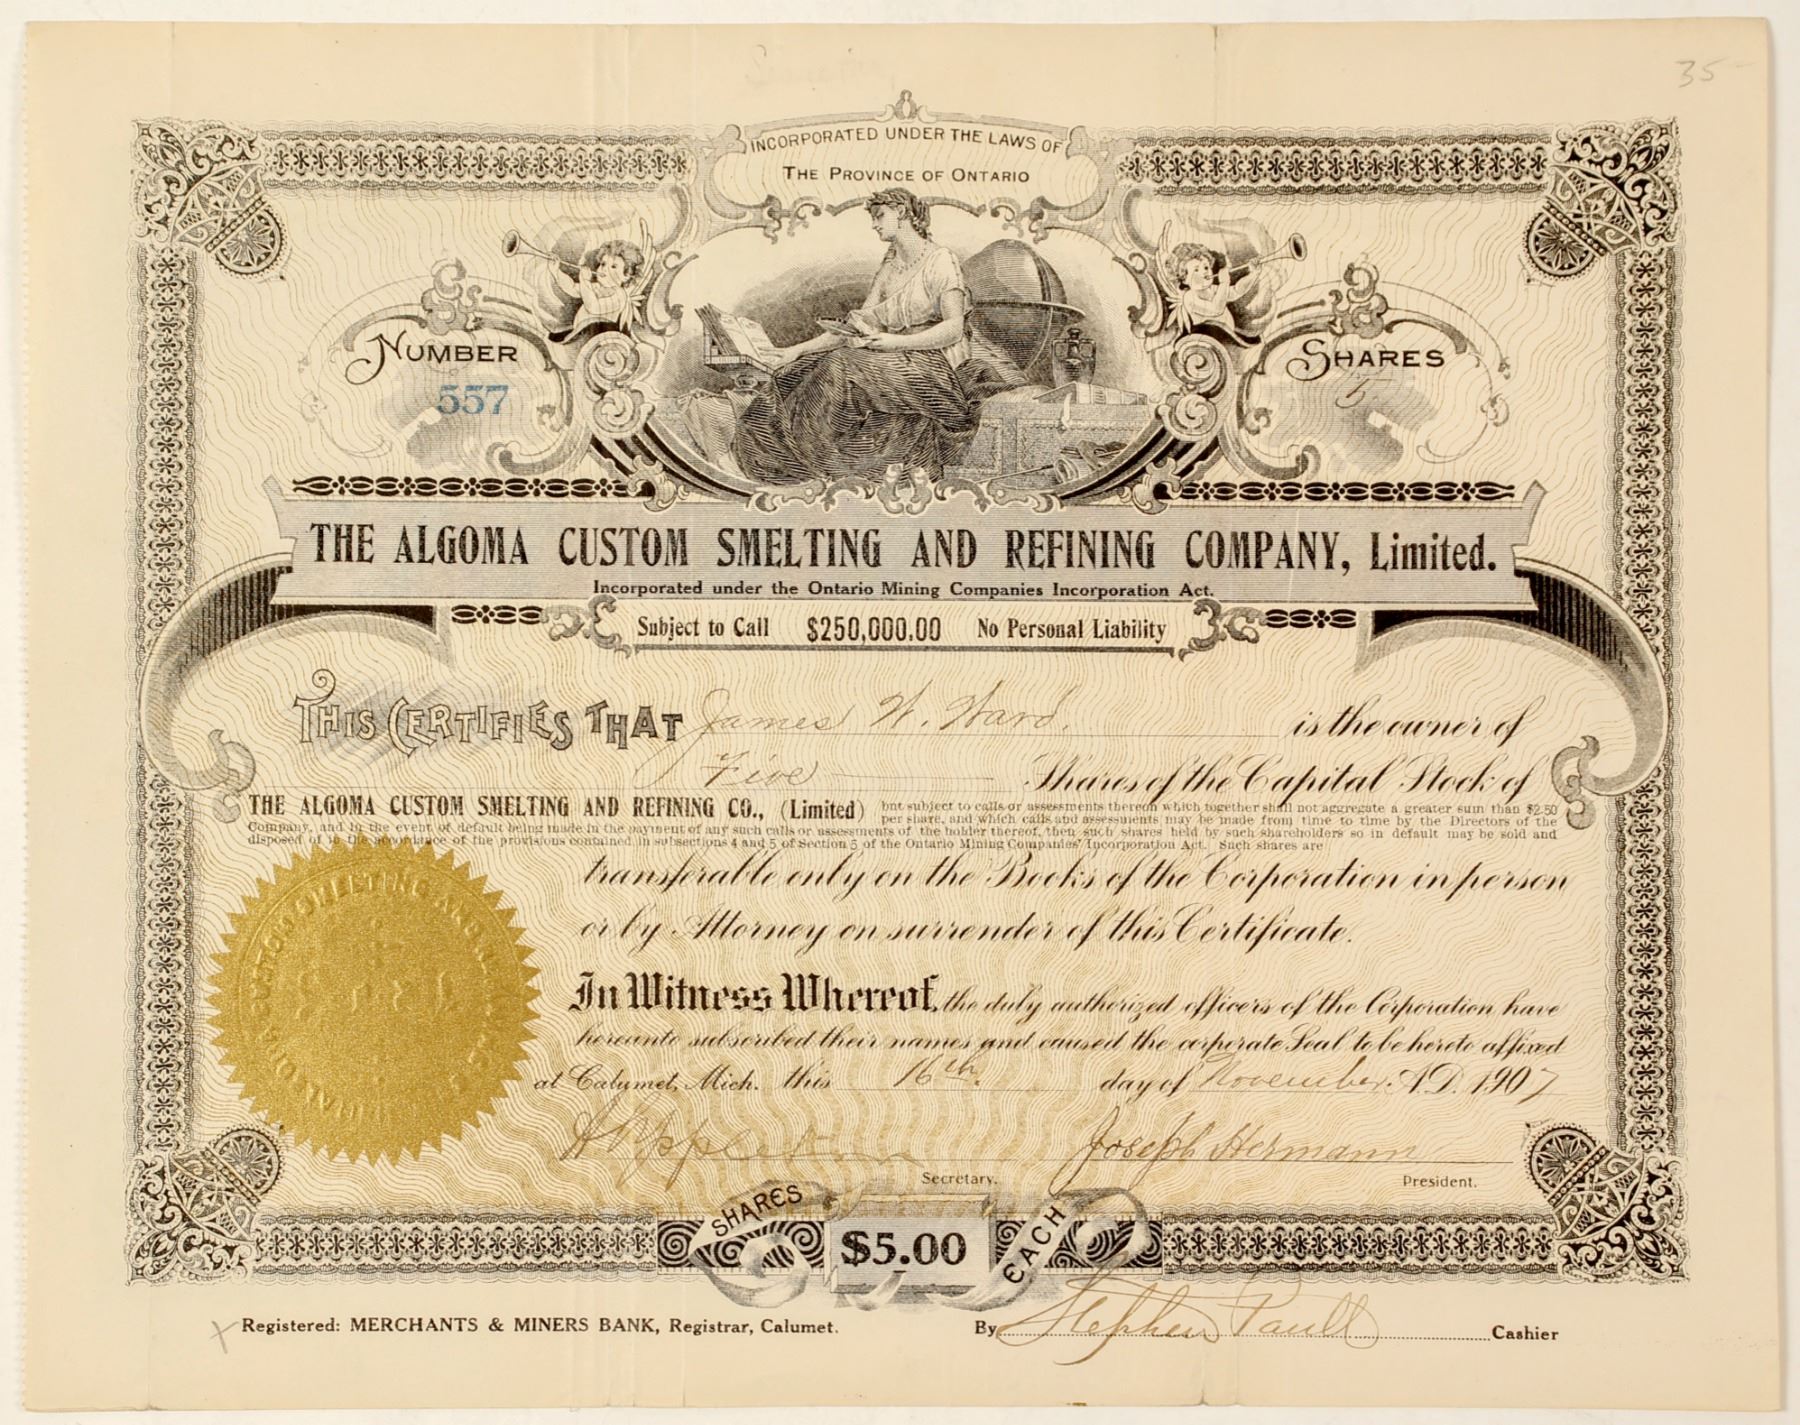 35-
INCORPORATED UNDER THE LAWS OF
THE PROVINCE OF ONTARIO
NUMBER
557
SHARES
5
THE ALGOMA CUSTOM SMELTING AND REFINING COMPANY, Limited.
Incorporated under the Ontario Mining Companies Incorporation Act.
Subject to Call $250,000.00 No Personal Liability
THIS CERTIFIES THAT James W. Ward. is the owner of
Five Shares of the Capital Stock of
THE ALGOMA CUSTOM SMELTING AND REFINING CO., (Limited) but subject to calls or assessments thereon which together shall not aggregate a greater sum than $2.50
per share, and which calls and assessments may be made from time to time by the Directors of the
Company, and in the event of default being made in the payment of any such calls or assessments of the holder thereof, then such shares held by such shareholders so in default may be sold and
disposed of in the accordance of the provisions contained in subsections 4 and 5 of Section 5 of the Ontario Mining Companies' Incorporation Act. Such shares are
transferable only on the Books of the Corporation in person
or by Attorney on surrender of this Certificate.
In Witness Whereof, the duly authorized officers of the Corporation have
hereunto subscribed their names and caused the corporate Seal to be hereto affixed
at Calumet, Mich. this 16th. day of November. A.D. 1907
Appleton
Joseph Hermann
Secretary.
President.
SHARES
$5.00
EACH
x Registered: MERCHANTS & MINERS BANK, Registrar, Calumet.
By Stephen Paull Cashier